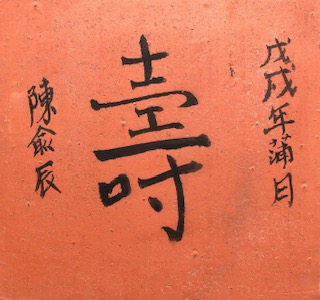 戊戌年蒲月
壽
陳俞辰